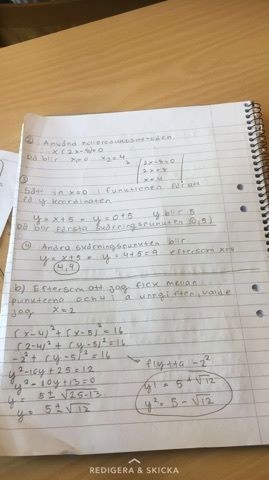 ② Använd nollproduktmetoden
x(2x-8)=0
Då blir x₁=0 x₂=4
2x-8=0
2x=8
x=4
③
Sätt in x=0 i funktionen för att
få y koordinaten
y=x+5 = y=0+5 y blir 5
Då blir första skärningspunkten (0,5)
④ Andra skärningspunkten blir
y=x+5 = y=4+5=9 eftersom x=4
(4,9)
b) Eftersom att jag fick mellan
punkterna och i a uppgiften, valde
jag x=2
(x-4)²+(x-5)²=16
(2-4)²+(y-5)²=16
-2²+(y-5)²=16
flytta -2²
y²-10y+25=12
y²-10y+13=0
y= 5±√25-13
y= 5±√12
y1= 5+√12
y²= 5-√12
REDIGERA & SKICKA